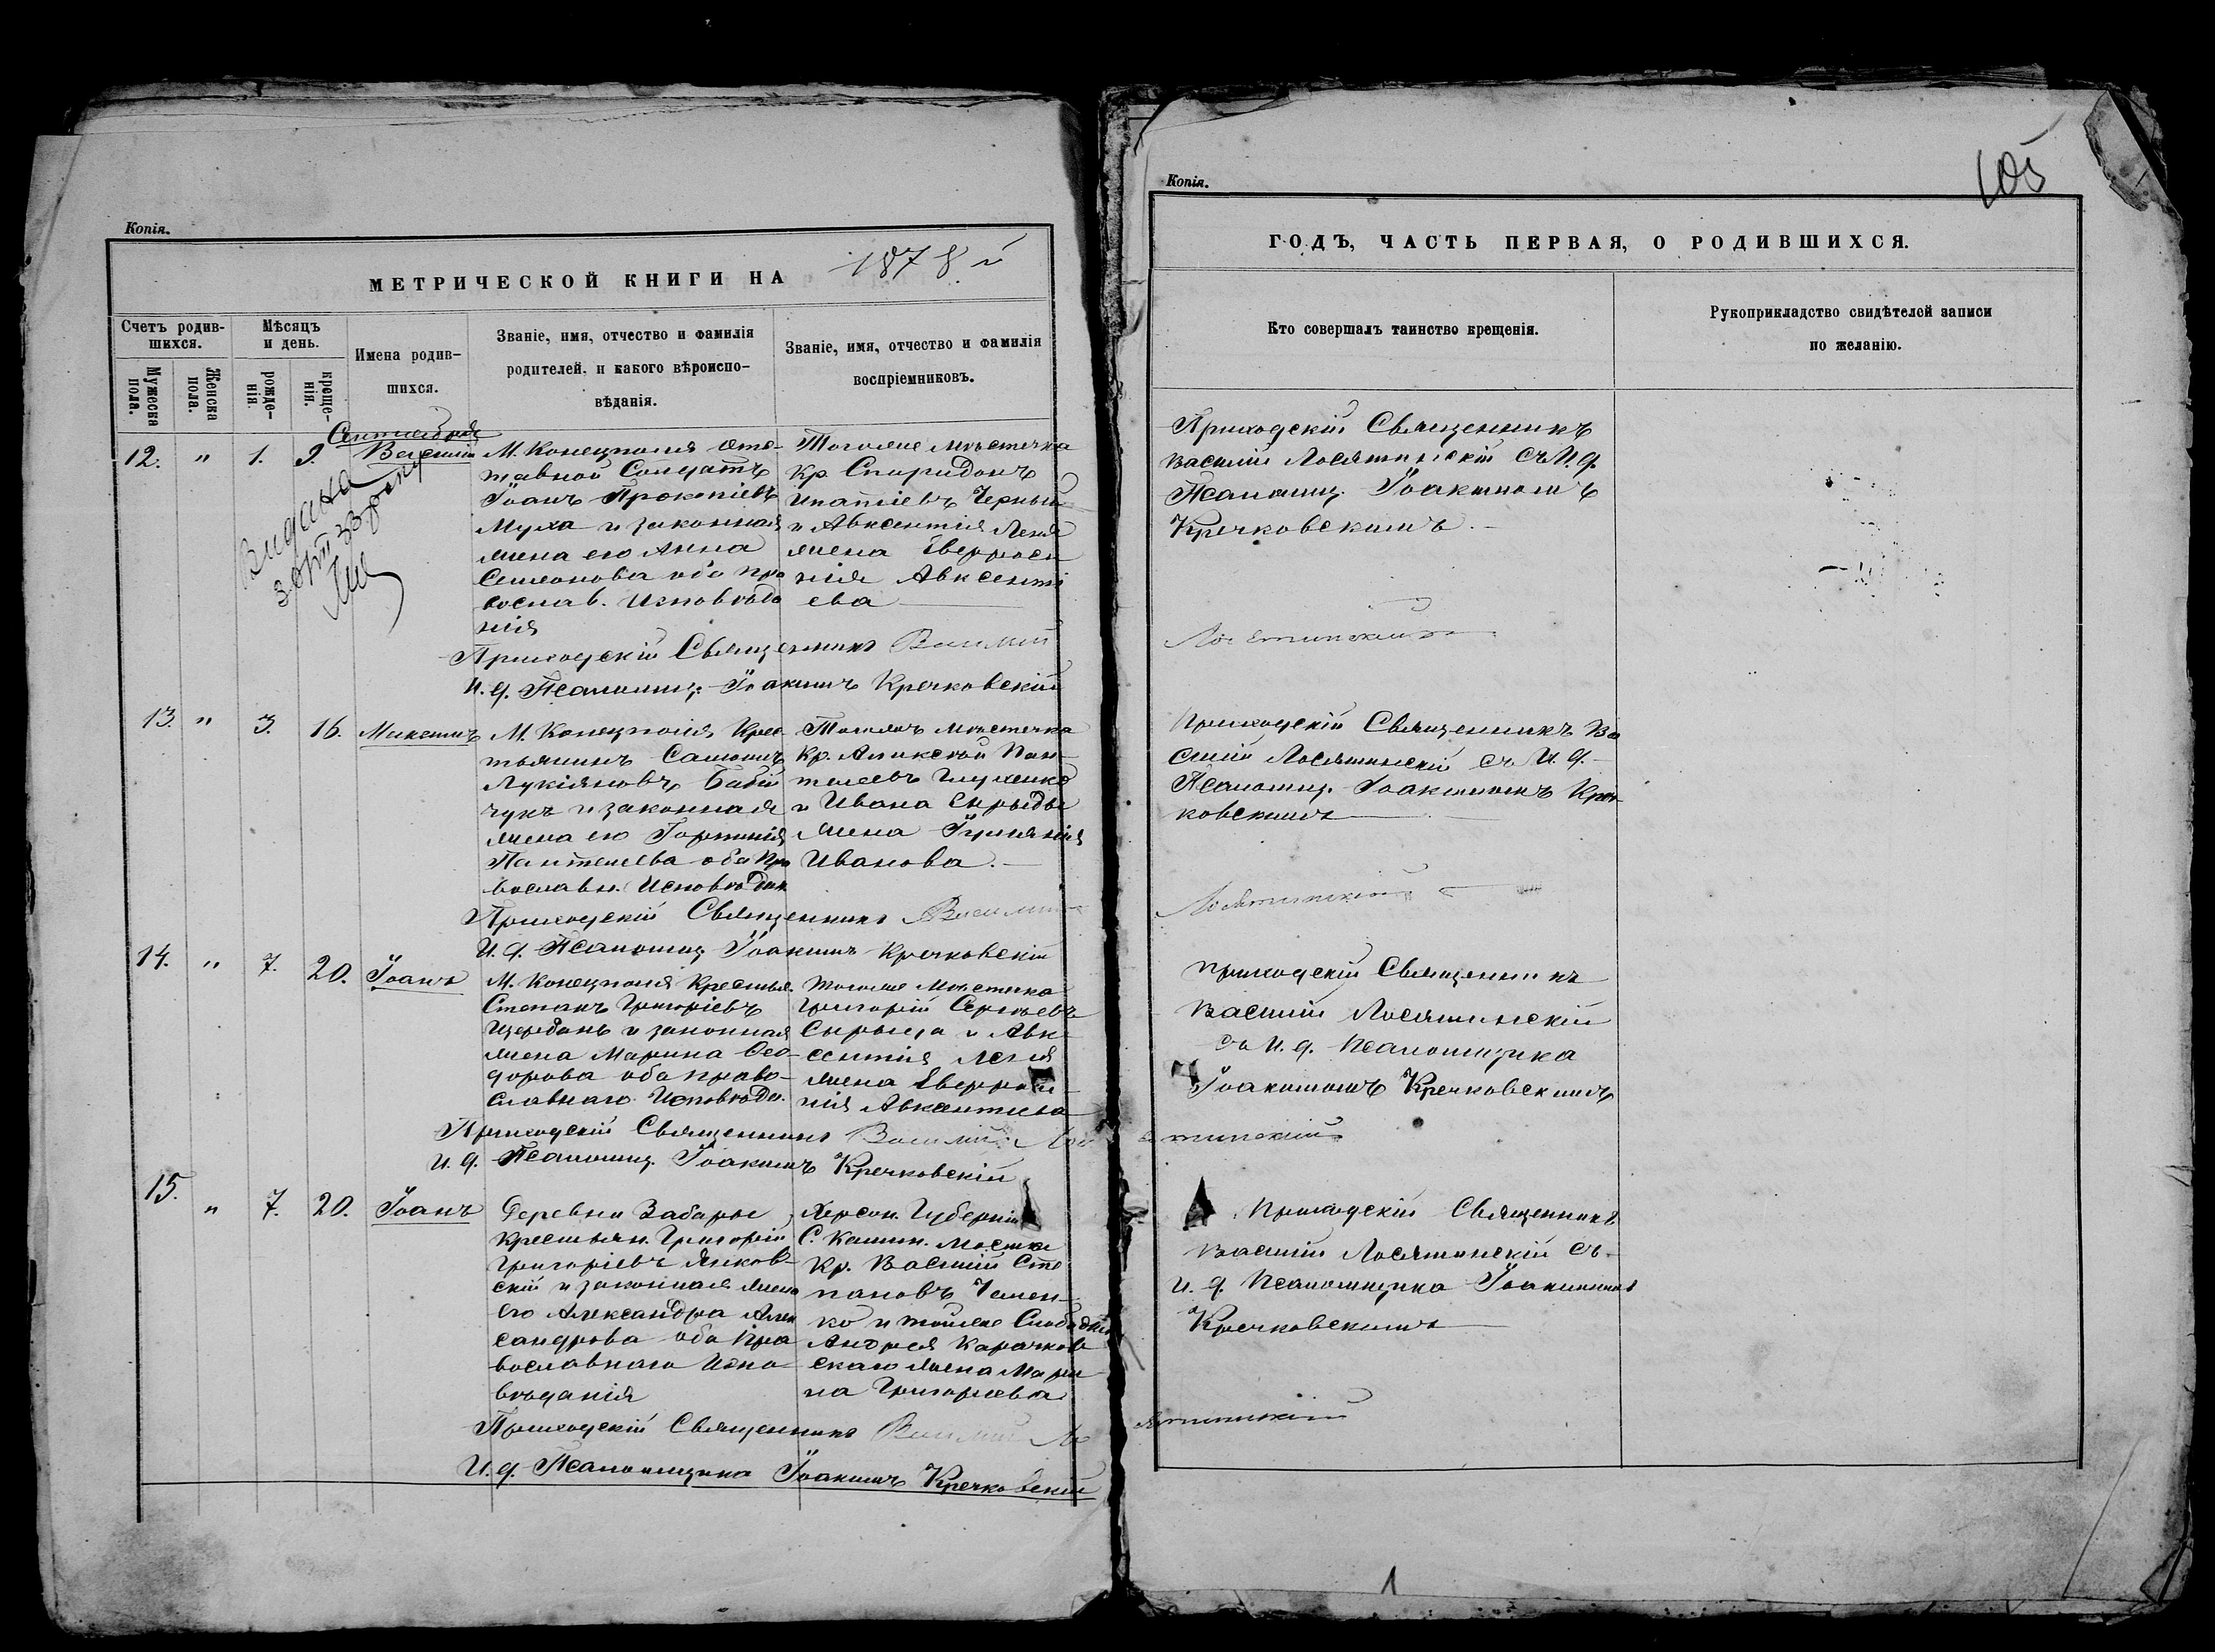 Копія.
МЕТРИЧЕСКОЙ КНИГИ НА 1878 й
Счетъ родив-
шихся.
Мѣсяцъ
и день.
Имена родив-
шихся.
Званіе, имя, отчество и фамилія
родителей, и какого вѣроиспо-
вѣданія.
Званіе, имя, отчество и фамилія
воспріемниковъ.
Мужеска
пола.
Женска
пола.
рожде-
нія.
креще-
нія.
Сентября
12. " 1. 9. Василій
Видана
М. Конецполя отс-
тавной Солдатъ
Іоанъ Прокопіевъ
Муха и законная
жена его Анна
Семенова оба пра
вослав. Исповѣда
нія
Тогоже мѣстечка
Кр. Спиридонъ
Ипатіевъ Черный
и Авксентія
жена Евфроси
нія Авксенті
ева
Приходскій Священникъ Василій
И. д. Псаломщ. Іоакимъ Кречковскій
13. " 3. 16. Максимъ
М. Конецполя Крес
тьянинъ Самоилъ
Лукіяновъ Бабій
чукъ и законная
жена его Горпинія
Пантелеева оба Пра
вославн. Исповѣдан
Тогожъ мѣстечка
Кр. Аликсѣй Пан-
телеевъ
и Ивана
жена Іуліянія
Иванова.
Приходскій Священникъ Василій
И. д. Псаломщ Іоакимъ Кречковскій
14. " 7. 20. Іоанъ
М. Конецполя Крестья.
Степанъ Григоріевъ
и законная
жена Марина Ѳео-
дорова оба право-
славнаго Исповѣда.
тогоже мѣстечка
Григорій Сергѣевъ
и Авк-
сентія
жена Евфроси
нія Авксентиева
Приходскій Священникъ Василій Лос
И. д. Псаломщ. Іоакимъ Кречковскій
15. " 7. 20. Іоанъ
Деревни Забары
крестьян. Григорій
Григоріевъ Янков-
скій и законная жена
его Александра Алек
сандрова оба Пра
вославнаго Испо
вѣданія
Херсон. Губерніи
С. Камин. Мостки
Кр. Василій Сте
пановъ
ко и тойже Слободки
Андрея Карачков
скаго жена Мари
на Григориева
Приходскій Священникъ Василій Ло
И. д. Псаломщика Іоакимъ Кречковскій
Копія.
105
ГОДЪ, ЧАСТЬ ПЕРВАЯ, О РОДИВШИХСЯ.
Кто совершалъ таинство крещенія.
Рукоприкладство свидѣтелей записи
по желанію.
Приходскій Священникъ
Василій Лосятинскій съ И. д.
Псаломщ. Іоакимомъ
Кречковскимъ.
Лосятинскій
Приходскій Священникъ Ва
силій Лосятинскій съ И. д.
Псаломщ. Іоакимомъ Креч-
ковскимъ
Лосятинскій
Приходскій Священникъ
Василій Лосятинскій
съ И. д. Псаломщика
Іоакимомъ Кречковскимъ
ятинскій
Приходскій Священникъ
Василій Лосятинскій съ
И. д. Псаломщика Іоакимомъ
Кречковскимъ
сятинскій
1